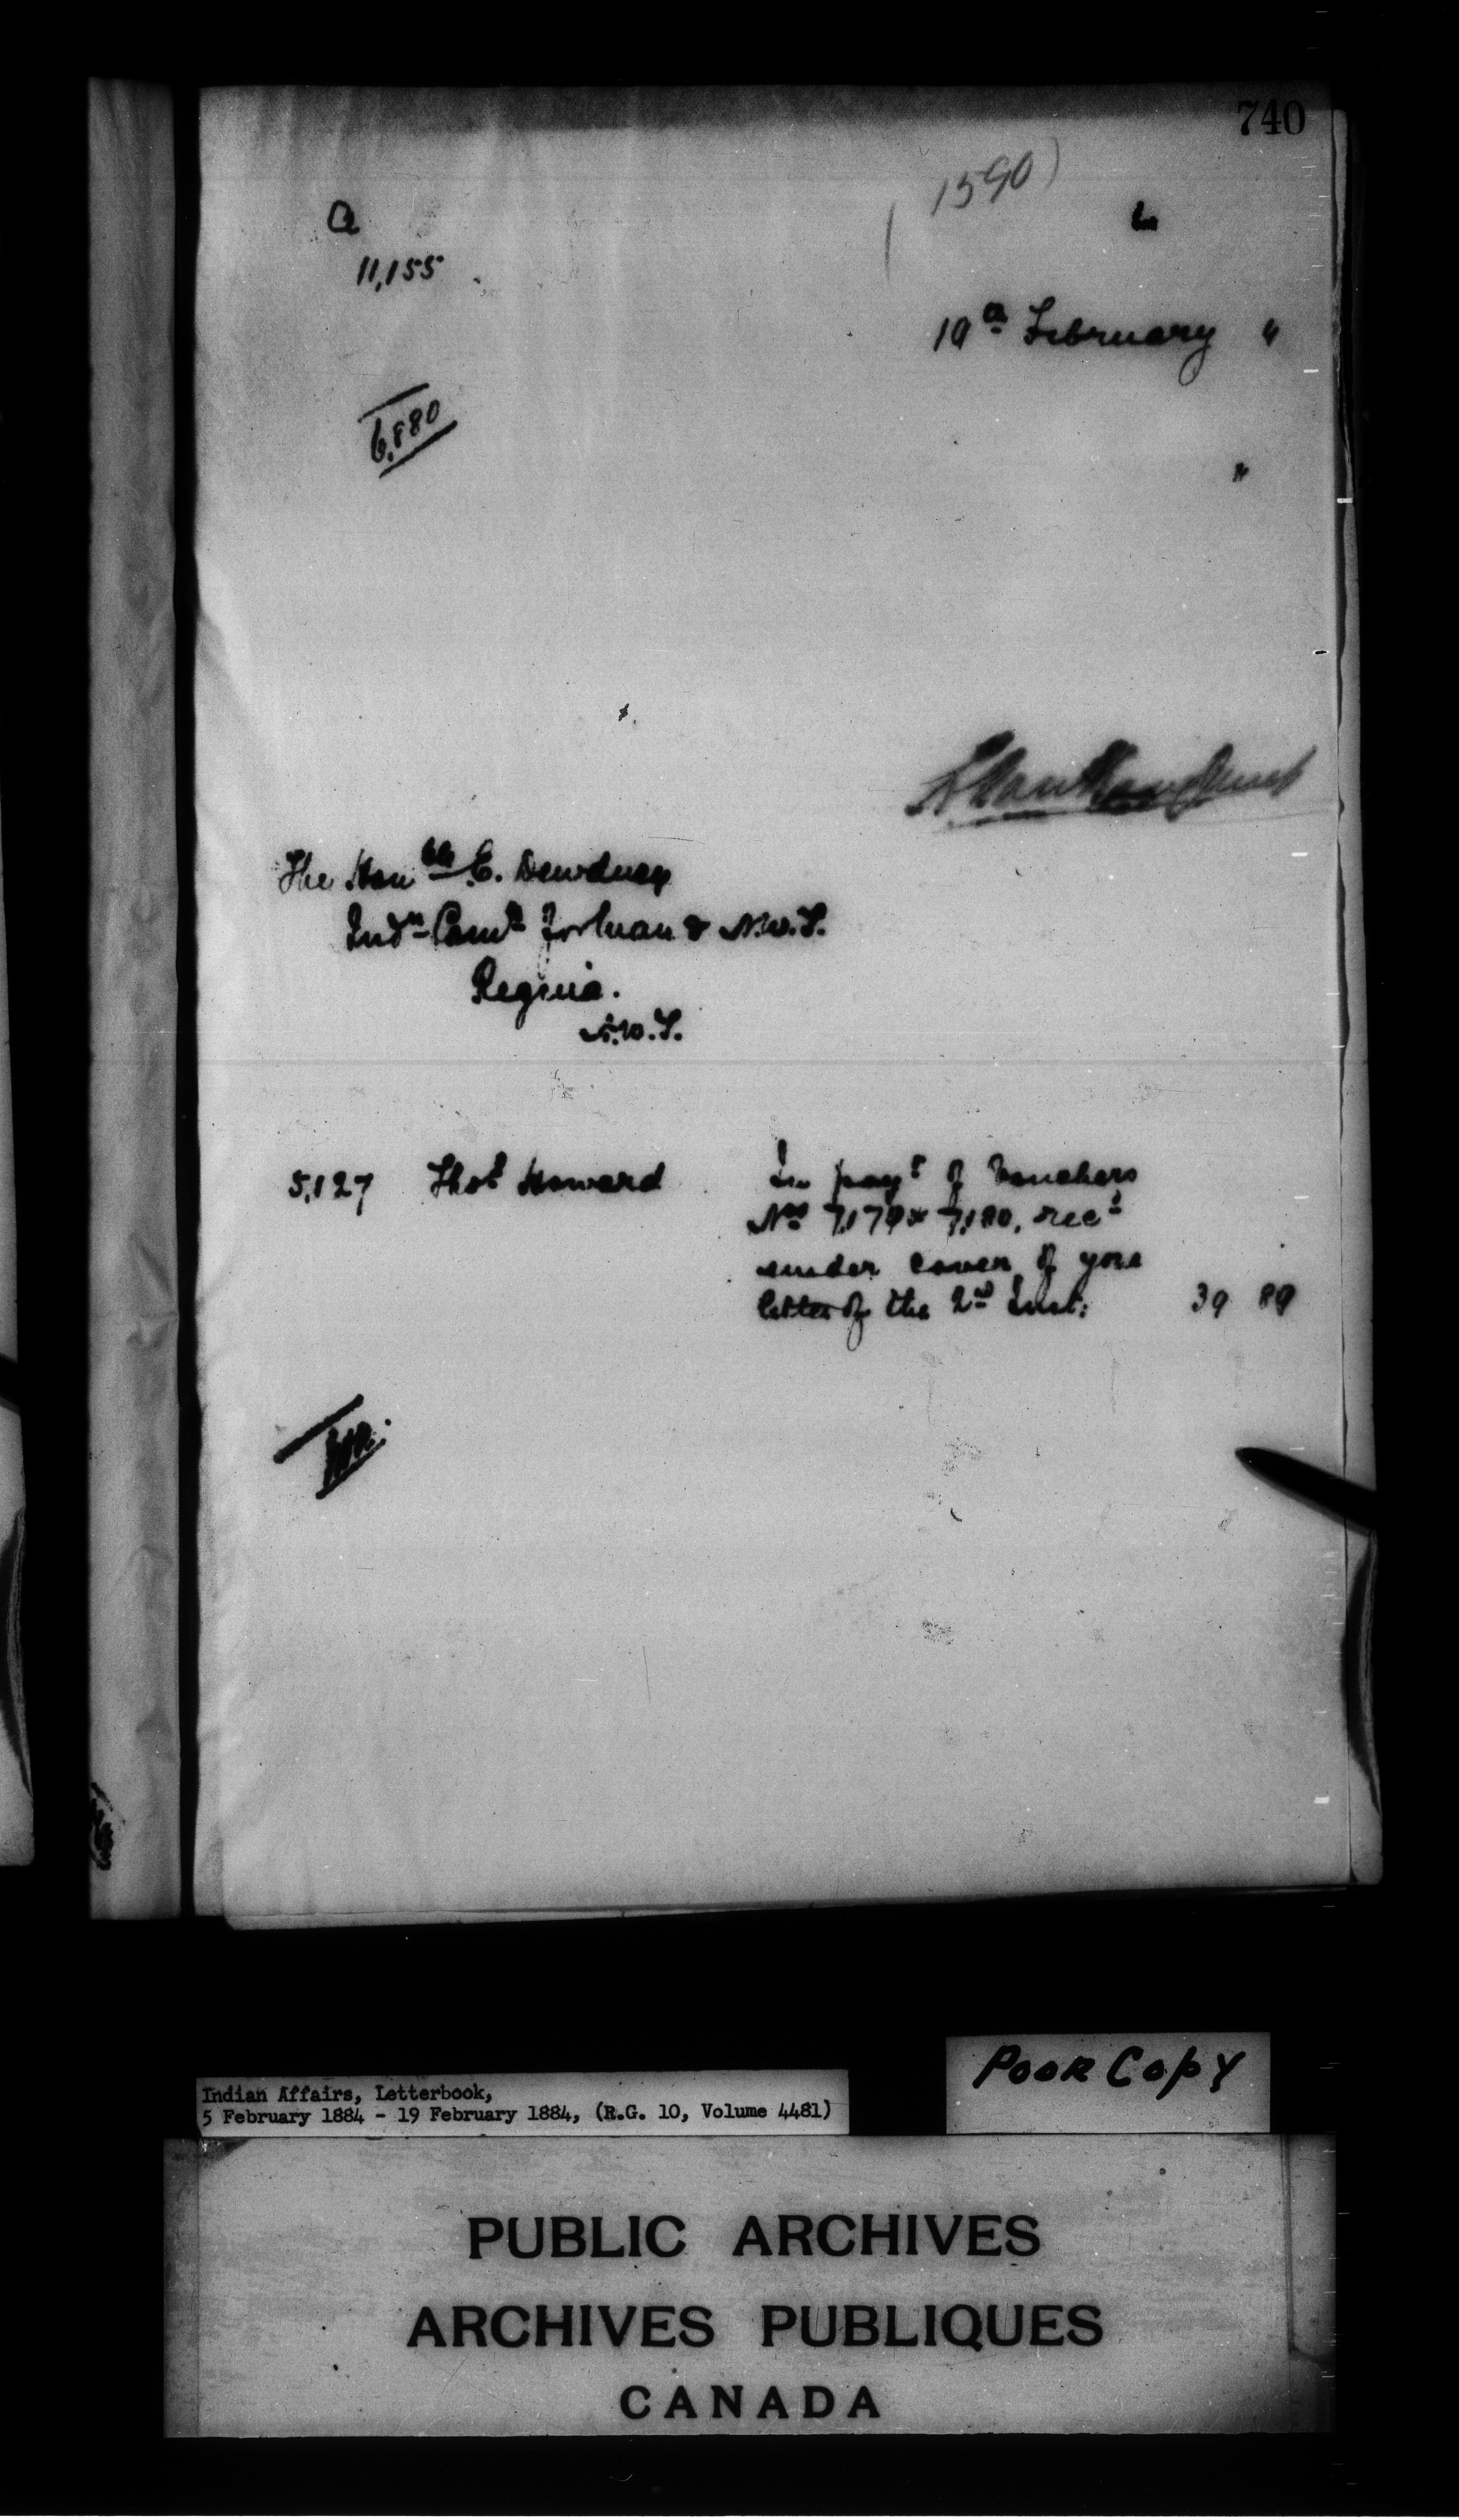 740
1590)
a
11,155
19th February "
6,880
"
L. VanKoughnet
The Honble E. Dewdney
Indn Comr for Man & N.W.T.
Regina.
N.W.T.
5,127 Thos Howard In payt of Vouchers
Nos 7,179 & 7,180, recd
under cover of your
letter of the 2nd Inst: 39 89
Indian Affairs, Letterbook,
5 February 1884 - 19 February 1884, (R.G. 10, Volume 4481)
Poor Copy
PUBLIC ARCHIVES
ARCHIVES PUBLIQUES
CANADA